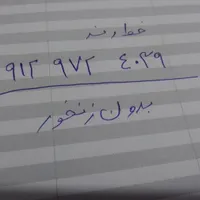 خوارند
۹۱۲ ۹۷۲ ۴۰۳۹
بدون زنخور